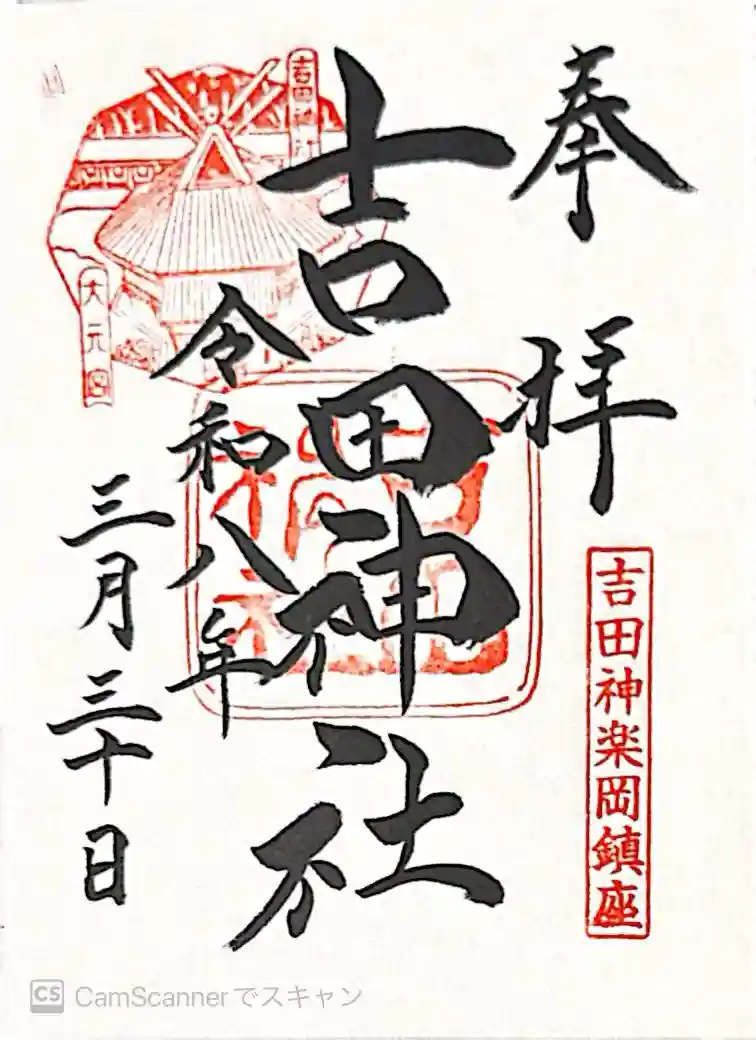 奉拝
吉田神楽岡鎮座
吉田神社
吉田神社
令和八年
三月三十日
大元宮
CS CamScannerでスキャン